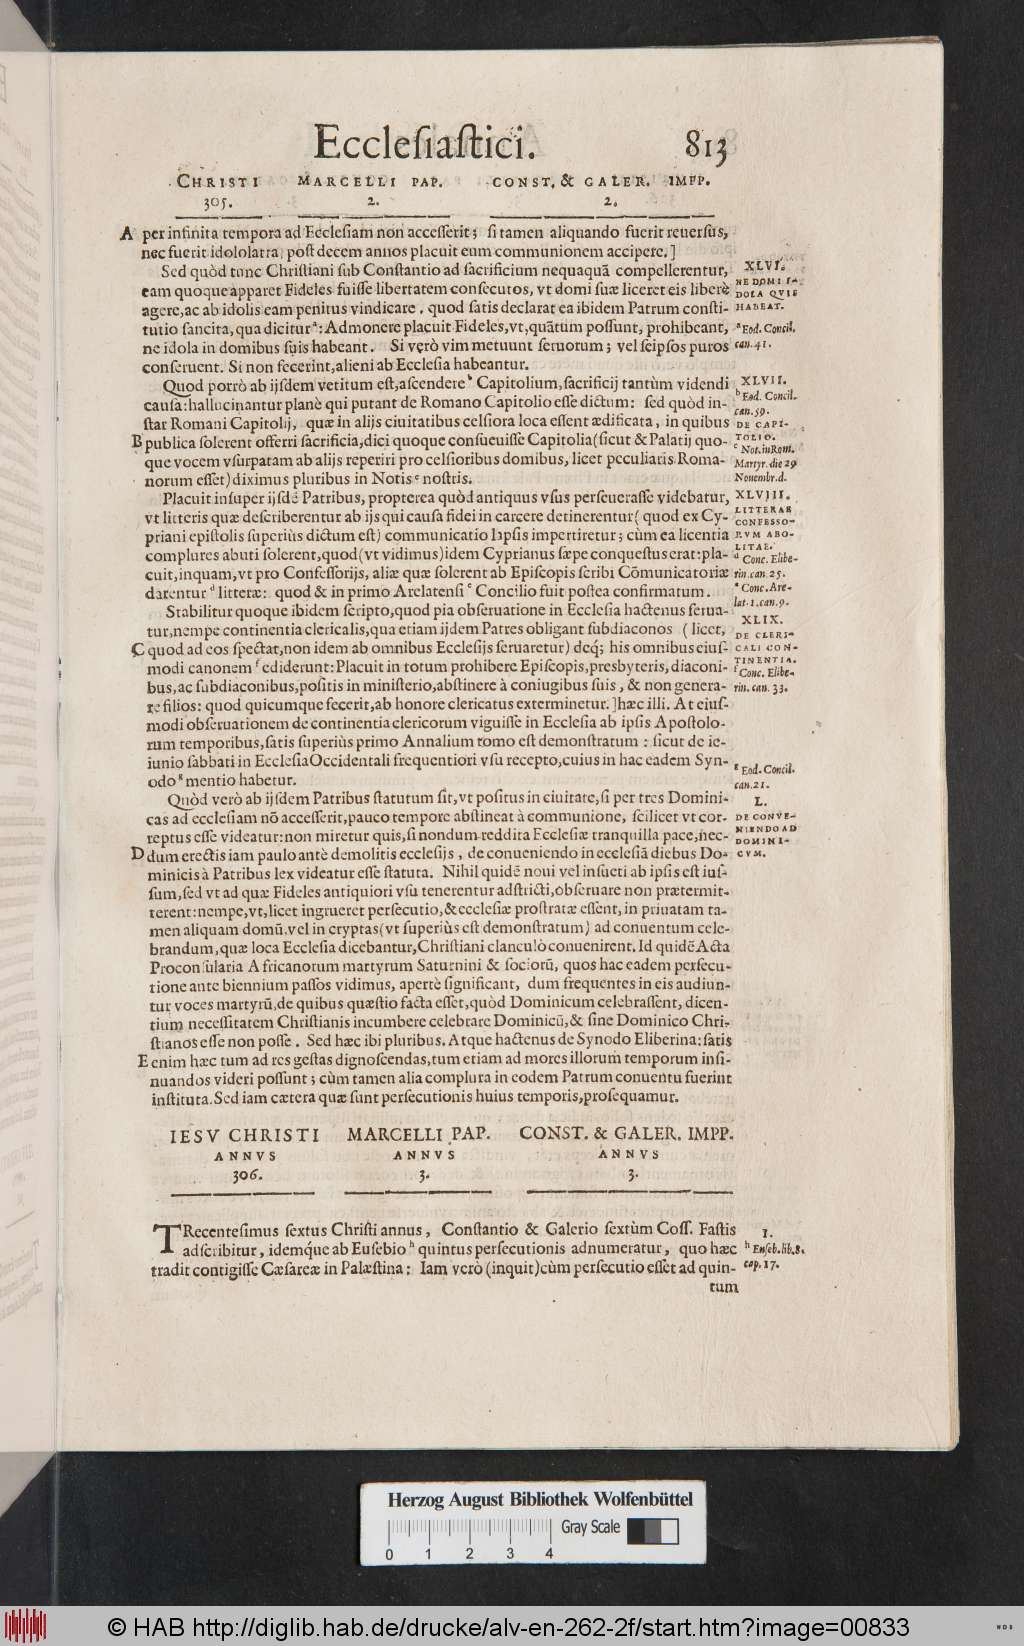 Eccleſiaſtici. 813
CHRISTI MARCELLI PAP. CONST. & GALER. IMPP.
305. 2. 2.
A per infinita tempora ad Eccleſiam non acceſſerit; ſi tamen aliquando fuerit reuerſus,
nec fuerit idololatra, poſt decem annos placuit eum communionem accipere.]
Sed quòd tunc Chriſtiani ſub Conſtantio ad ſacrificium nequaquã compellerentur,
eam quoque apparet Fideles fuiſſe libertatem conſecutos, vt domi ſuæ liceret eis liberè
agere, ac ab idolis eam penitus vindicare. quod ſatis declarat ea ibidem Patrum conſti-
tutio ſancita, qua dicitur ª: Admonere placuit Fideles, vt, quãtum poſſunt, prohibeant,
ne idola in domibus ſuis habeant. Si verò vim metuunt ſeruorum; vel ſeipſos puros
conſeruent. Si non fecerint, alieni ab Eccleſia habeantur.
XLVI.
NE DOMI I-
DOLA QVIS
HABEAT.
ª Eod. Concil.
can. 41.
Quod porrò ab ijſdem vetitum eſt, aſcendere ᵇ Capitolium, ſacrificij tantùm videndi
cauſa: hallucinantur planè qui putant de Romano Capitolio eſſe dictum: ſed quòd in-
ſtar Romani Capitolij, quæ in alijs ciuitatibus celſiora loca eſſent ædificata, in quibus
B publica ſolerent offerri ſacrificia, dici quoque conſueuiſſe Capitolia (ſicut & Palatij quo-
que vocem vſurpatam ab alijs reperiri pro celſioribus domibus, licet peculiaris Roma-
norum eſſet) diximus pluribus in Notis ᶜ noſtris.
XLVII.
ᵇ Eod. Concil.
can. 59.
DE CAPI-
TOLIO.
ᶜ Not. in Rom.
Martyr. die 29
Nouembr. d.
Placuit inſuper ijſdẽ Patribus, propterea quòd antiquus vſus perſeueraſſe videbatur,
vt litteris quæ deſcriberentur ab ijs qui cauſa fidei in carcere detinerentur (quod ex Cy-
priani epiſtolis ſuperiùs dictum eſt) communicatio lapſis impertiretur; cùm ea licentia
complures abuti ſolerent, quod (vt vidimus) idem Cyprianus ſæpe conqueſtus erat: pla-
cuit, inquam, vt pro Confeſſorijs, aliæ quæ ſolerent ab Epiſcopis ſcribi Cõmunicatoriæ
darentur ᵈ litteræ: quod & in primo Arelatenſi ᵉ Concilio fuit poſtea confirmatum.
XLVIII.
LITTERAE
CONFESSO-
RVM ABO-
LITAE.
ᵈ Conc. Elibe-
rin. can. 25.
ᵉ Conc. Are-
lat. 1. can. 9.
Stabilitur quoque ibidem ſcripto, quod pia obſeruatione in Eccleſia hactenus ſerua-
tur, nempe continentia clericalis, qua etiam ijdem Patres obligant ſubdiaconos (licet,
C quod ad eos ſpectat, non idem ab omnibus Eccleſijs ſeruaretur) deq́; his omnibus eiuſ-
modi canonem ᶠ ediderunt: Placuit in totum prohibere Epiſcopis, presbyteris, diaconi-
bus, ac ſubdiaconibus, poſitis in miniſterio, abſtinere à coniugibus ſuis, & non genera-
re filios: quod quicumque fecerit, ab honore clericatus exterminetur.] hæc illi. At eiuſ-
modi obſeruationem de continentia clericorum viguiſſe in Eccleſia ab ipſis Apoſtolo-
rum temporibus, ſatis ſuperiùs primo Annalium tomo eſt demonſtratum: ſicut de ie-
iunio ſabbati in Eccleſia Occidentali frequentiori vſu recepto, cuius in hac eadem Syn-
odo ᵍ mentio habetur.
XLIX.
DE CLERI-
CALI CON-
TINENTIA.
ᶠ Conc. Elibe-
rin. can. 33.
ᵍ Eod. Concil.
can. 21.
Quòd verò ab ijſdem Patribus ſtatutum ſit, vt poſitus in ciuitate, ſi per tres Domini-
cas ad eccleſiam nõ acceſſerit, pauco tempore abſtineat à communione, ſcilicet vt cor-
reptus eſſe videatur: non miretur quis, ſi nondum reddita Eccleſiæ tranquilla pace, nec-
D dum erectis iam paulo antè demolitis eccleſijs, de conueniendo in eccleſiã diebus Do-
minicis à Patribus lex videatur eſſe ſtatuta. Nihil quidẽ noui vel inſueti ab ipſis eſt iuſ-
ſum, ſed vt ad quæ Fideles antiquiori vſu tenerentur adſtricti, obſeruare non prætermit-
terent: nempe, vt, licet ingrueret perſecutio, & eccleſiæ proſtratæ eſſent, in priuatam ta-
men aliquam domũ, vel in cryptas (vt ſuperiùs eſt demonſtratum) ad conuentum cele-
brandum, quæ loca Eccleſia dicebantur, Chriſtiani clanculò conuenirent. Id quidẽ Acta
Proconſularia Africanorum martyrum Saturnini & ſociorũ, quos hac eadem perſecu-
tione ante biennium paſſos vidimus, apertè ſignificant, dum frequentes in eis audiun-
tur voces martyrũ, de quibus quæſtio facta eſſet, quòd Dominicum celebraſſent, dicen-
tium neceſſitatem Chriſtianis incumbere celebrare Dominicũ, & ſine Dominico Chri-
ſtianos eſſe non poſſe. Sed hæc ibi pluribus. Atque hactenus de Synodo Eliberina: ſatis
E enim hæc tum ad res geſtas dignoſcendas, tum etiam ad mores illorum temporum inſi-
nuandos videri poſſunt; cùm tamen alia complura in eodem Patrum conuentu fuerint
inſtituta. Sed iam cætera quæ ſunt perſecutionis huius temporis, proſequamur.
L.
DE CONVE-
NIENDO AD
DOMINI-
CVM.
IESV CHRISTI MARCELLI PAP. CONST. & GALER. IMPP.
ANNVS ANNVS ANNVS
306. 3. 3.
TRecenteſimus ſextus Chriſti annus, Conſtantio & Galerio ſextùm Coſſ. Faſtis
adſcribitur, idemq́ue ab Euſebio ʰ quintus perſecutionis adnumeratur, quo hæc
tradit contigiſſe Cæſareæ in Palæſtina: Iam verò (inquit) cùm perſecutio eſſet ad quin-
tum
I.
ʰ Euſeb. lib. 8.
cap. 17.
Herzog August Bibliothek Wolfenbüttel
Gray Scale
0 1 2 3 4
© HAB http://diglib.hab.de/drucke/alv-en-262-2f/start.htm?image=00833